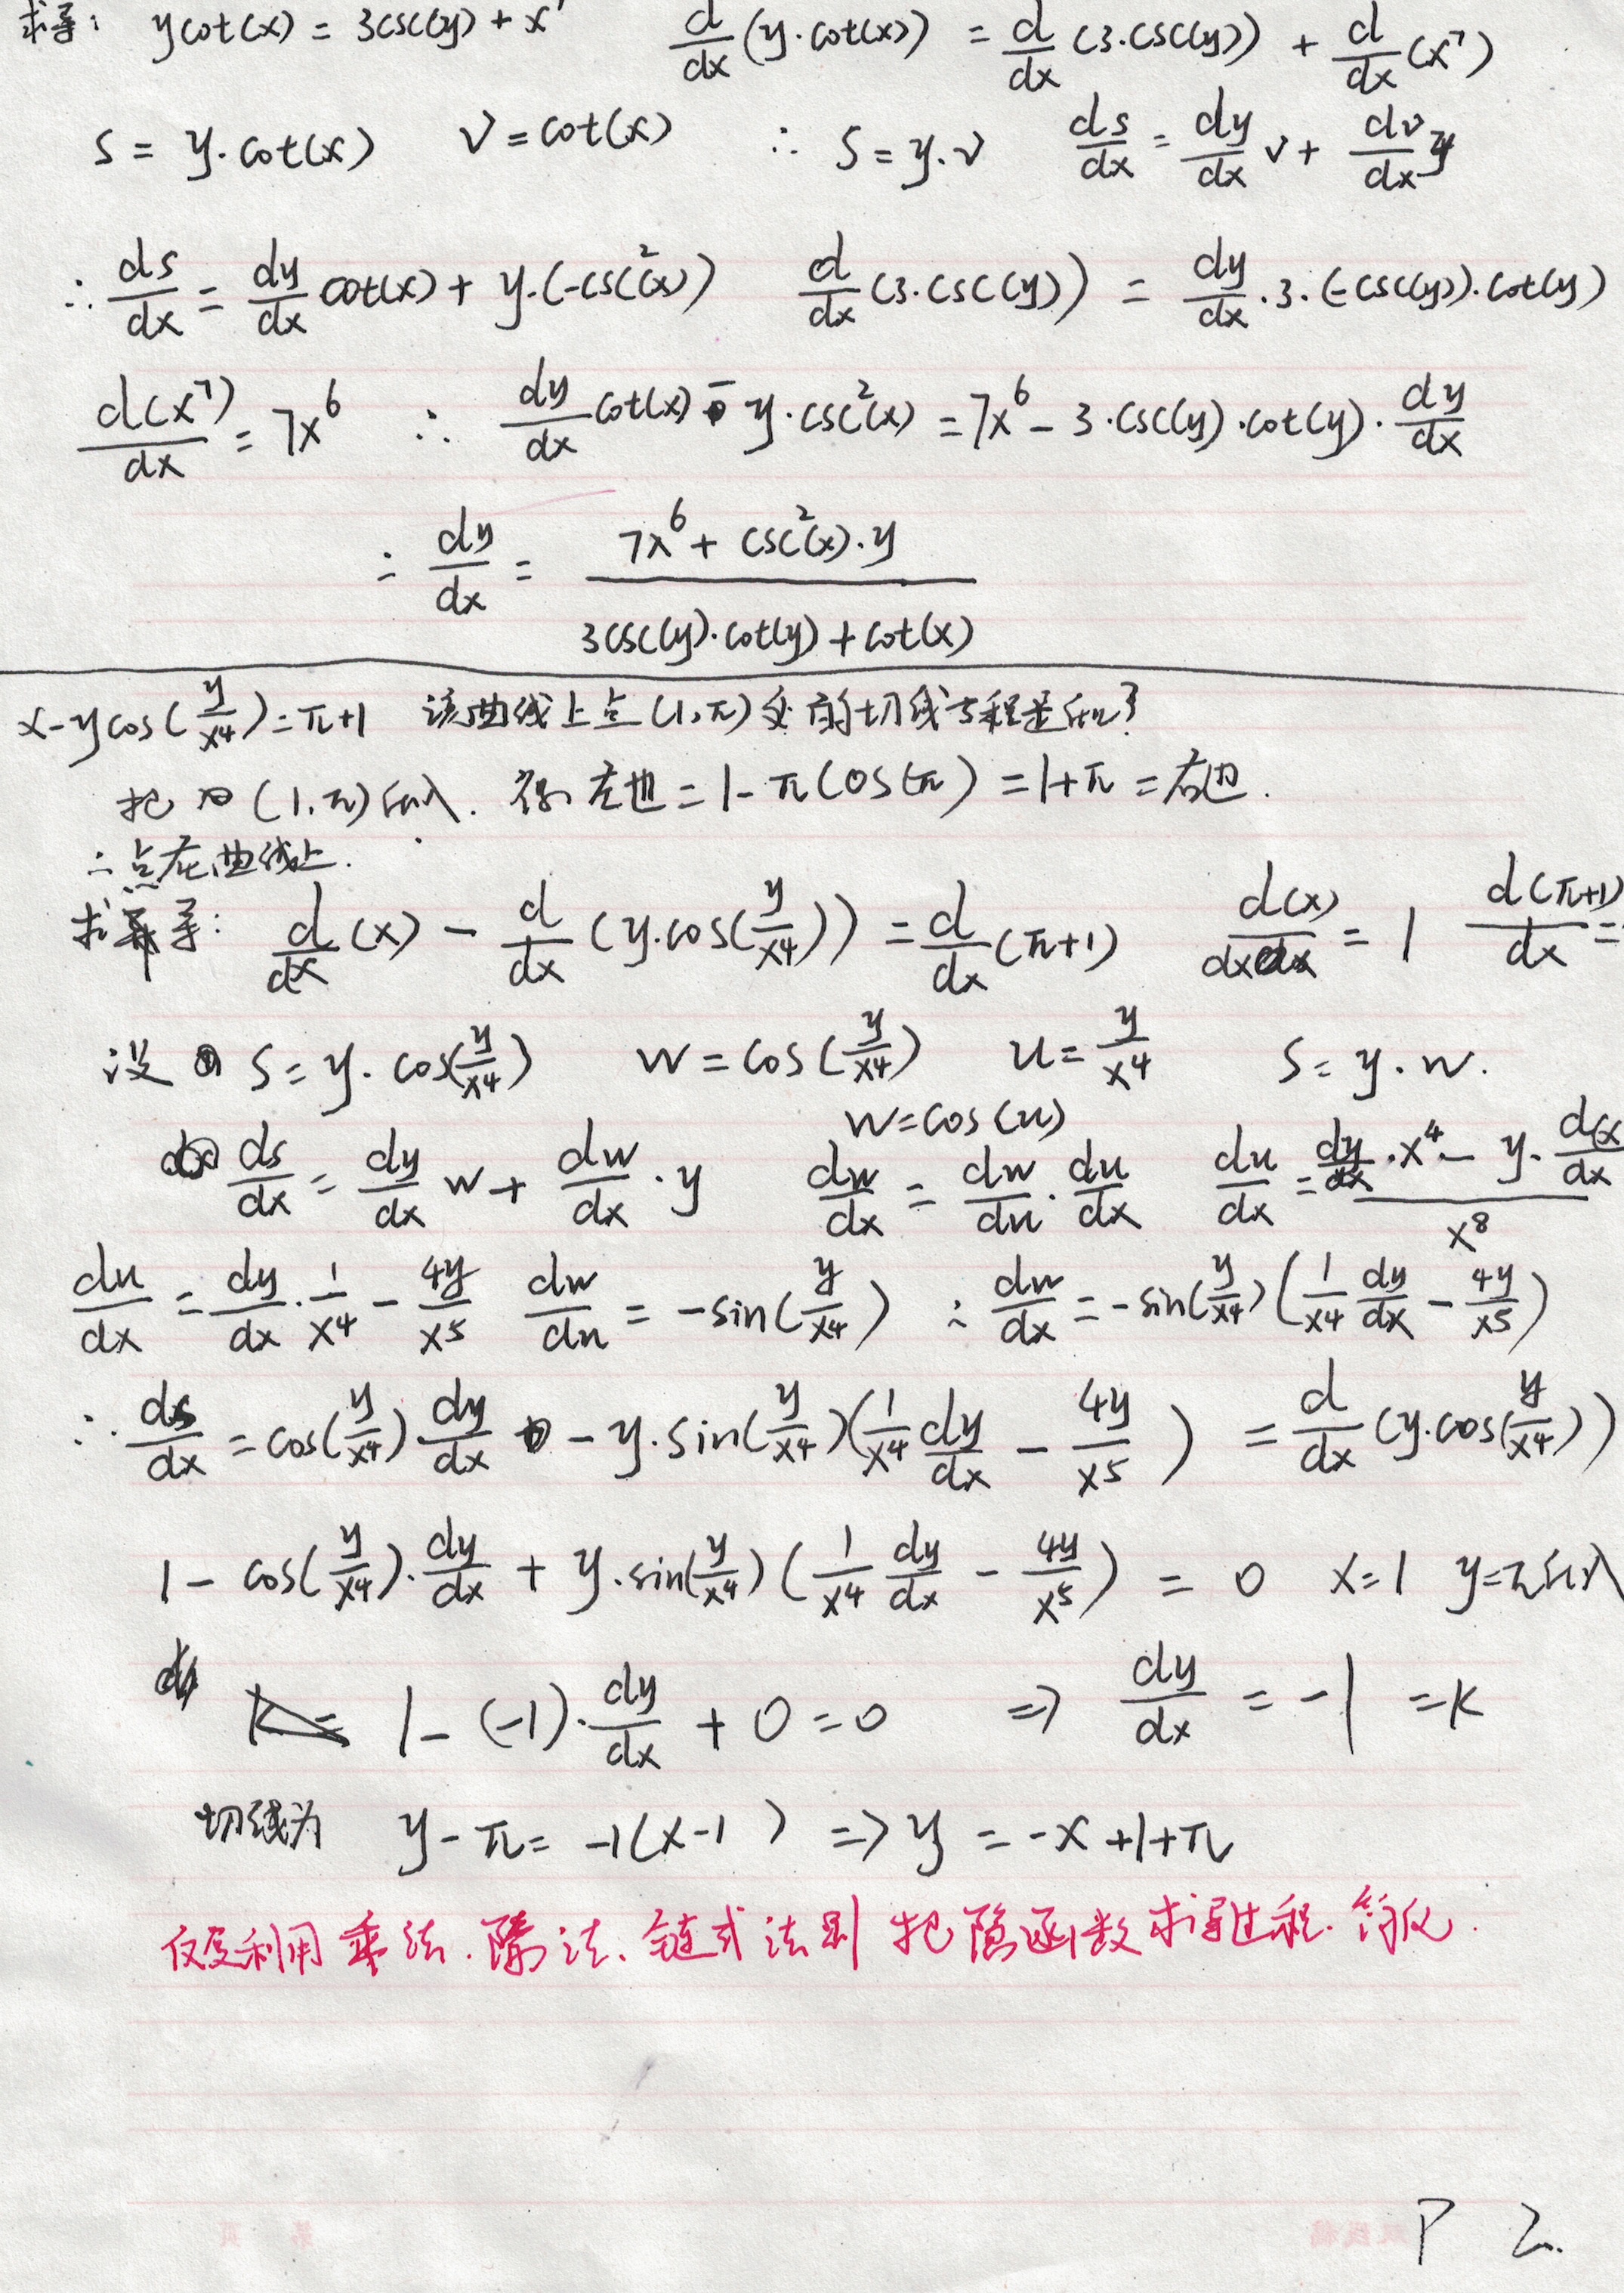 求导: ycot(x) = 3csc(y) + x⁷ d/dx (y·cot(x)) = d/dx (3·csc(y)) + d/dx (x⁷)
s = y·cot(x) v = cot(x) ∴ s = y·v ds/dx = dy/dx v + dv/dx y
∴ ds/dx = dy/dx cot(x) + y·(-csc²(x)) d/dx (3·csc(y)) = dy/dx ·3·(-csc(y))·cot(y)
d(x⁷)/dx = 7x⁶ ∴ dy/dx cot(x) - y·csc²(x) = 7x⁶ - 3·csc(y)·cot(y)·dy/dx
∴ dy/dx = (7x⁶ + csc²(x)·y)/(3csc(y)·cot(y) + cot(x))
x - ycos(y/x⁴) = π+1 该曲线上点(1,π)处的切线方程是什么?
把 (1,π)代入. 得 左边 = 1 - πcos(π) = 1+π = 右边.
∴点在曲线上.
求导: d/dx (x) - d/dx (y·cos(y/x⁴)) = d/dx (π+1) d(x)/dx = 1 d(π+1)/dx =
设 s = y·cos(y/x⁴) w = cos(y/x⁴) u = y/x⁴ s = y·w.
w = cos(u)
ds/dx = dy/dx w + dw/dx ·y dw/dx = dw/du · du/dx du/dx = (dy/dx ·x⁴ - y·d(x/dx)/x⁸
du/dx = dy/dx · 1/x⁴ - 4y/x⁵ dw/du = -sin(y/x⁴) ∴ dw/dx = -sin(y/x⁴)(1/x⁴ dy/dx - 4y/x⁵)
∴ ds/dx = cos(y/x⁴)·dy/dx - y·sin(y/x⁴)(1/x⁴ dy/dx - 4y/x⁵) = d/dx (y·cos(y/x⁴))
1 - cos(y/x⁴)·dy/dx + y·sin(y/x⁴)(1/x⁴ dy/dx - 4y/x⁵) = 0 x=1 y=π代入
1 - (-1)·dy/dx + 0 = 0 ⇒ dy/dx = -1 = k
切线为 y - π = -1(x-1) ⇒ y = -x+1+π
反复利用乘法.除法.链式法则 把隐函数求导过程.简化.
P 2.